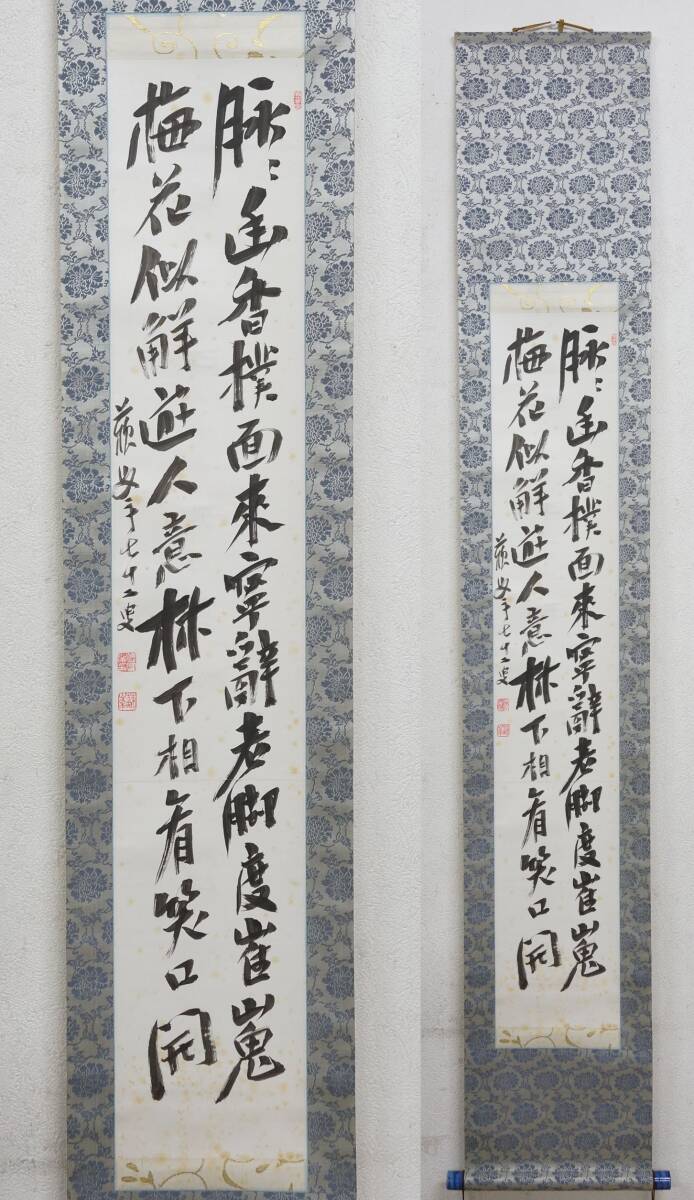 脉〻幽香撲面來寧辭老脚度崔嵬
梅花似解遊人意林下相看笑口開
七十二叟
脉〻幽香撲面來寧辭老脚度崔嵬
梅花似解遊人意林下相看笑口開
七十二叟